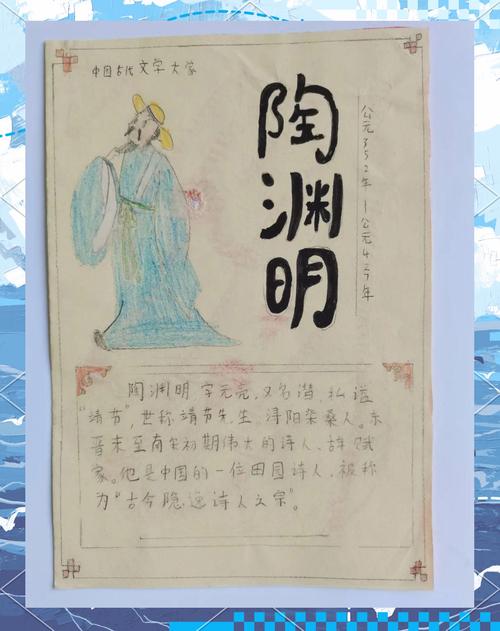 中国古代文学大家
陶渊明
公元352年—公元427年
陶渊明,字元亮,又名潜,私谥
“靖节”,世称靖节先生。浔阳柴桑人。东
晋末至南宋初期伟大的诗人、辞赋
家。他是中国的一位田园诗人,被称
为“古今隐逸诗人之宗”。